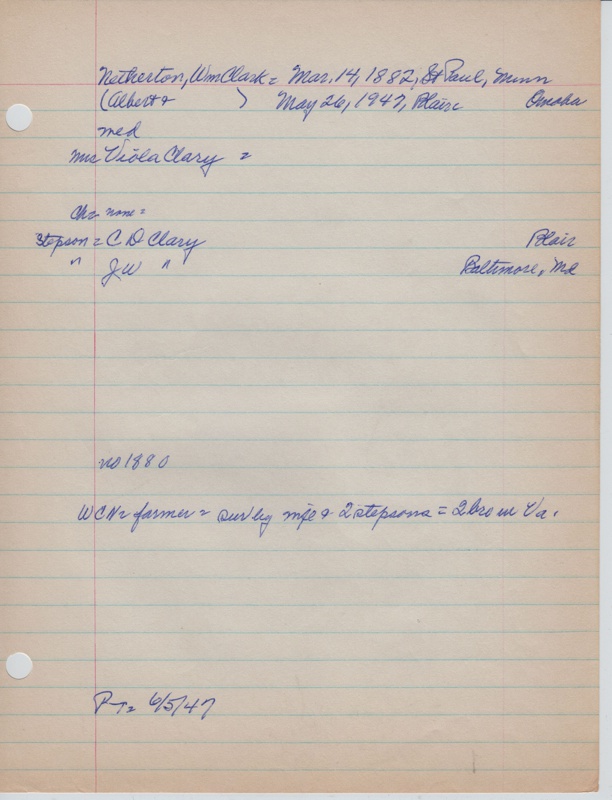 Netherton, Wm Clark = Mar. 14, 1882, St Paul, Minn
(Albert & ) May 26, 1947, Blair Omaha
med
Mrs Viola Clary =
Ch = none =
Stepson = C D Clary Blair
" J W " Baltimore, Md
no 1880
WCN = farmer = sur by wife & 2 stepsons = 2 bro in Va.
P-T = 6/5/47